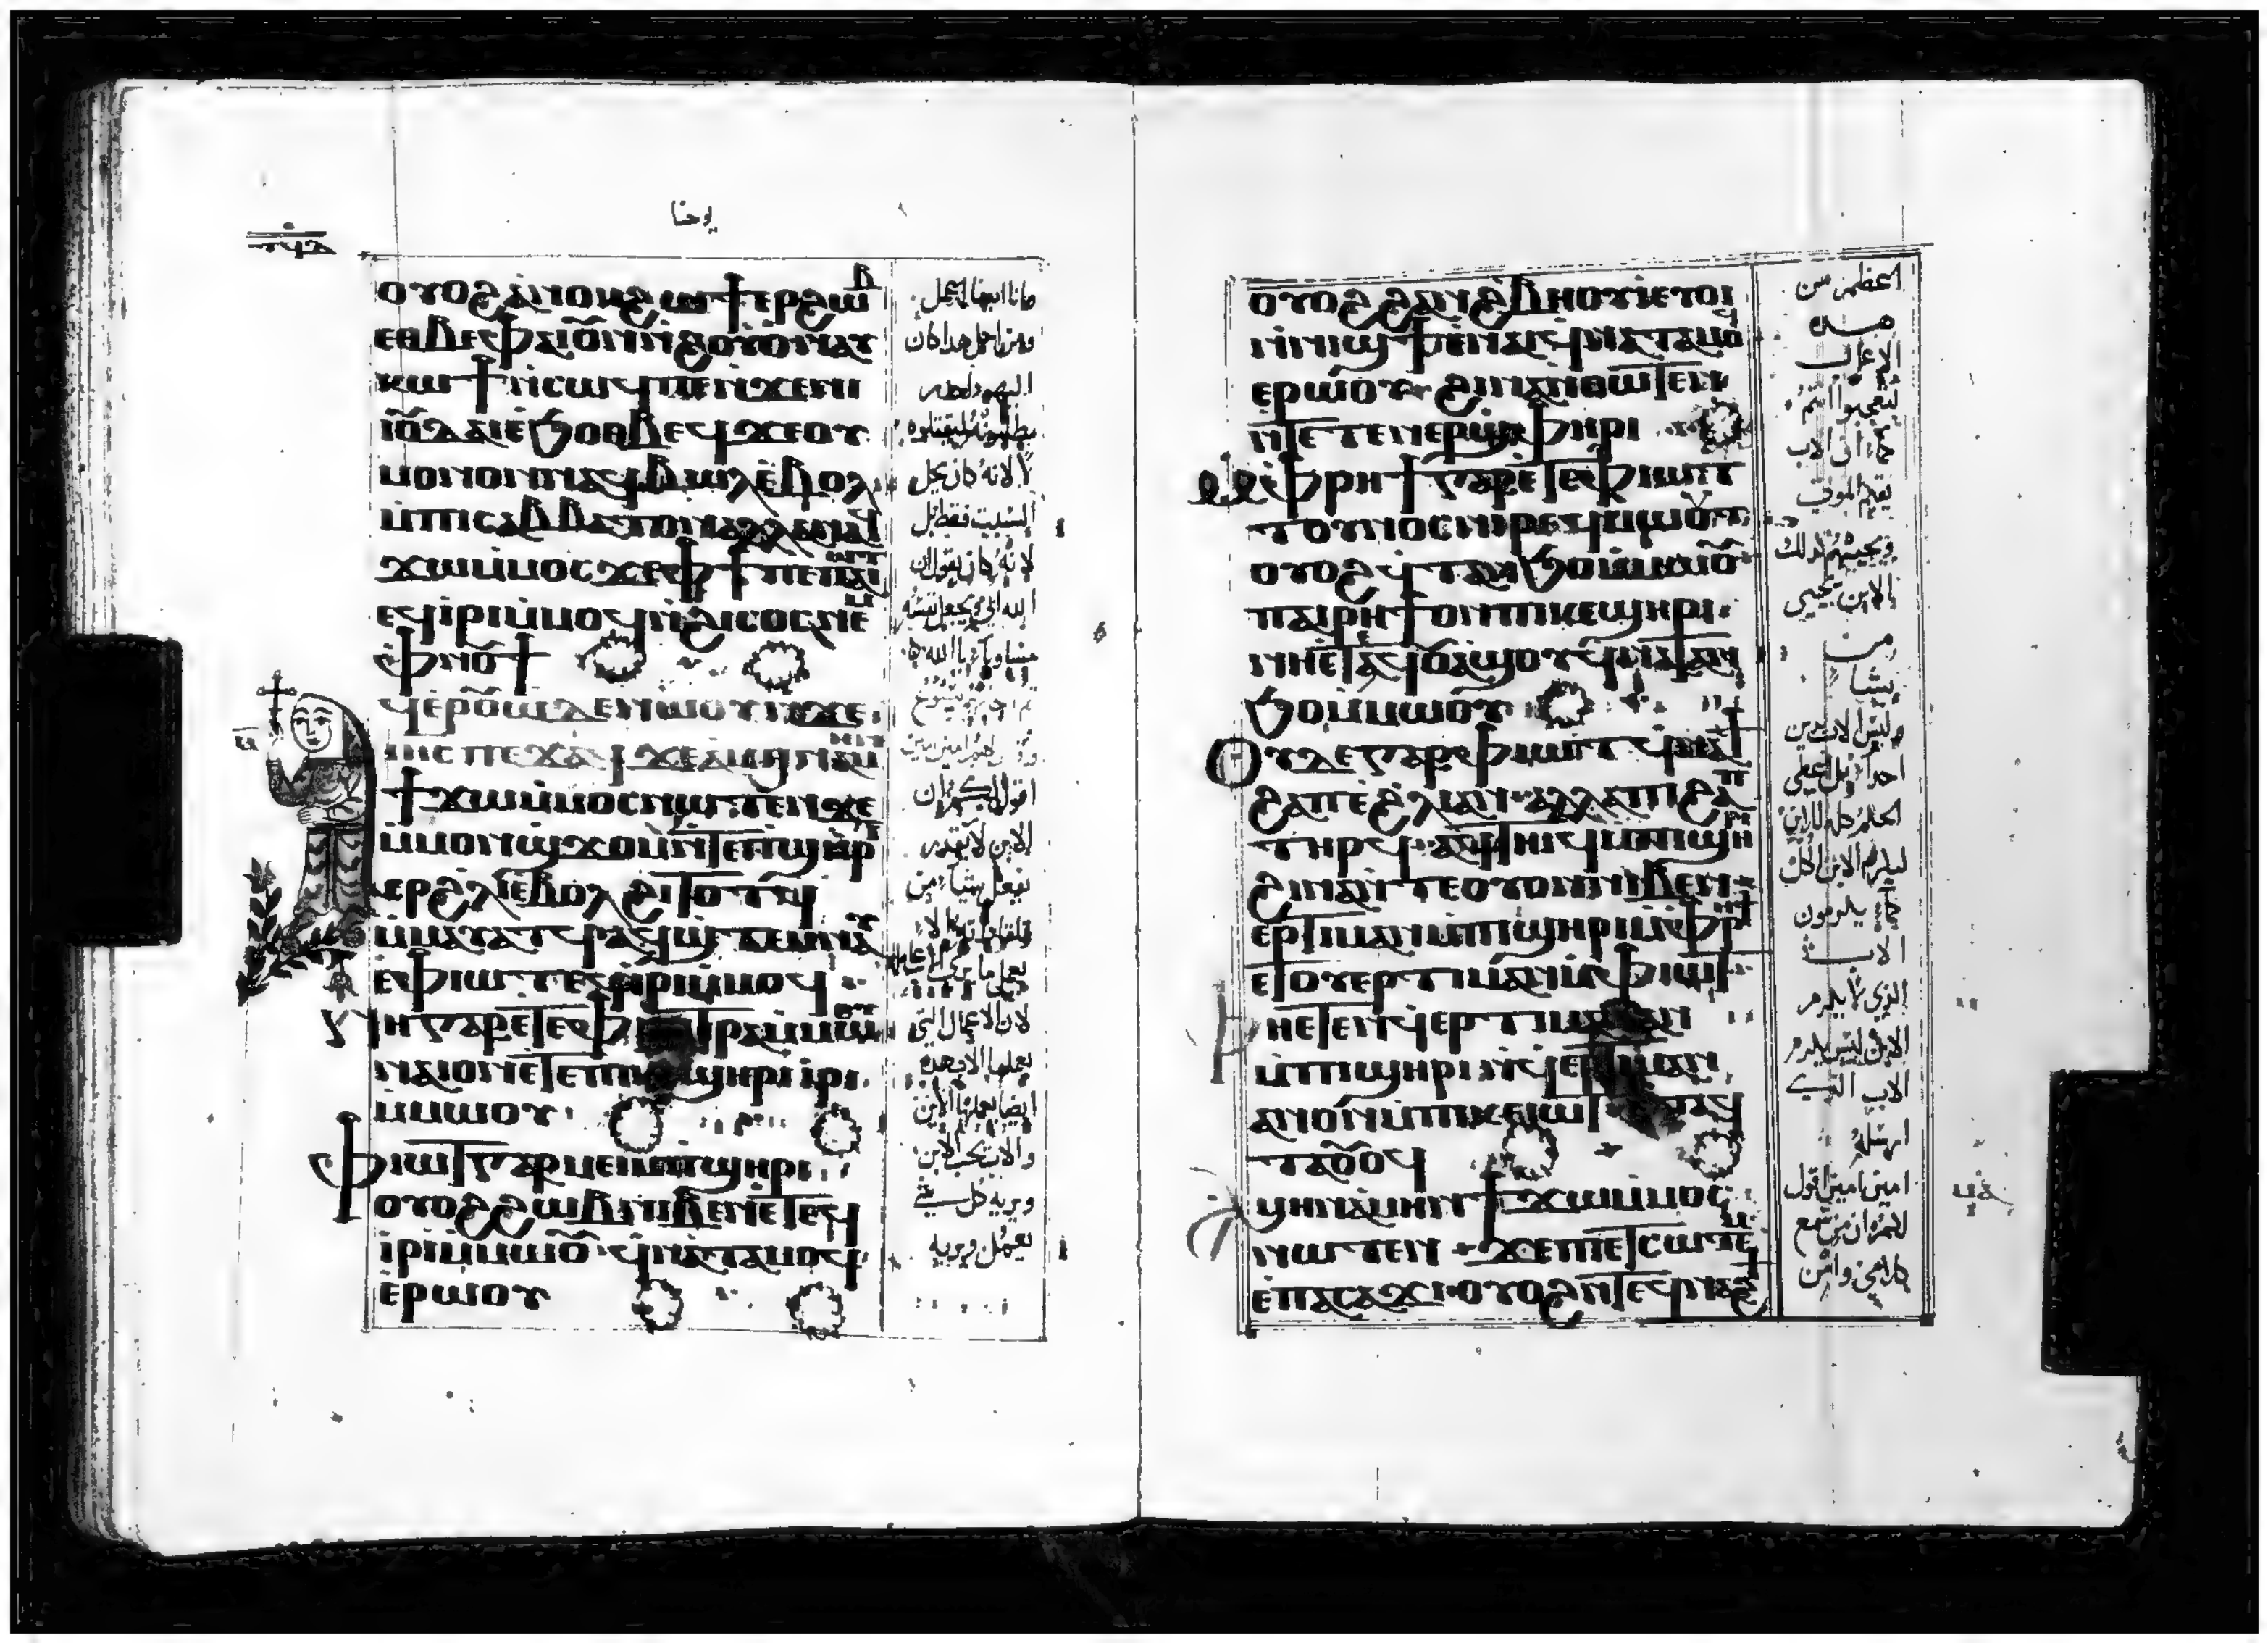 يوحنا
ⲟⲩⲟϩ ⲁⲛⲟⲕ ϩⲱ ϯⲉⲣϩⲱⲃ
ⲉⲑⲃⲉ ⲫⲁⲓ ⲟⲩⲛ ⲛⲁⲩ
ⲕⲱϯ ⲛⲥⲱϥ ⲡⲉ ⲛϫⲉ ⲛⲓ
ⲓⲟⲩⲇⲁⲓ ⲉϧⲟⲑⲃⲉϥ ϫⲉ ⲟⲩ
ⲙⲟⲛⲟⲛ ⲛⲁϥⲃⲱⲗ ⲉⲃⲟⲗ
ⲙⲡⲓⲥⲁⲃⲃⲁⲧⲟⲛ ⲁⲗⲗⲁ ⲛⲁϥ
ϫⲱ ⲙⲙⲟⲥ ϫⲉ ⲫϯ ⲡⲉ ⲡⲁⲓⲱⲧ
ⲉϥⲓⲣⲓ ⲙⲙⲟϥ ⲛϩⲓⲥⲟⲥ ⲛⲉⲙ
ⲫⲛⲟⲩϯ
ϥⲉⲣⲟⲩⲱ ⲇⲉ ⲛⲱⲟⲩ ⲛϫⲉ
ⲓⲏⲥ ⲡⲉϫⲁϥ ϫⲉ ⲁⲙⲏⲛ ⲁⲙⲏⲛ
ϯϫⲱ ⲙⲙⲟⲥ ⲛⲱⲧⲉⲛ ϫⲉ
ⲙⲙⲟⲛ ϣϫⲟⲙ ⲛⲧⲉ ⲡϣⲏⲣⲓ
ⲉⲣ ϩⲗⲓ ⲉⲃⲟⲗ ϩⲓⲧⲟⲧϥ
ⲙⲙⲁⲩⲁⲧϥ ⲁϥϣⲧⲉⲙⲛⲁⲩ
ⲉⲫⲓⲱⲧ ⲉϥⲓⲣⲓ ⲙⲙⲟϥ
ⲛⲏ ⲅⲁⲣ ⲉⲧⲉ ⲫⲓⲱⲧ ⲣⲁ ⲙⲙⲱⲟⲩ
ⲛⲁⲓ ⲟⲛ ⲉⲧⲉ ⲡⲓⲕⲉϣⲏⲣⲓ ⲓⲣⲓ
ⲙⲙⲱⲟⲩ
ⲫⲓⲱⲧ ⲅⲁⲣ ⲙⲉⲓ ⲙⲡϣⲏⲣⲓ
ⲟⲩⲟϩ ϩⲱⲃ ⲛⲓⲃⲉⲛ ⲉⲧⲉϥ
ⲓⲣⲓ ⲙⲙⲱⲟⲩ ϥⲛⲁⲧⲁⲙⲟϥ
ⲉⲣⲱⲟⲩ
وانا ايضا اعمل
ومن اجل هدا كان
اليهود
يطلبونه ليقتلوه
لا لانه كان يحل
السبت فقط بل
لانه كان يقول ان
الله ابي ويجعل نفسه
اقول لكم ان
الابن لا يقدر
يفعل شيا من
لان الاعمال التي
يعملها الاب هده
ايضا يعملها الابن
والاب يحب الابن
ويريه كل شي
يعمل ويريه
ⲟⲩⲟϩ ϩⲁⲛϩⲃⲏⲟⲩⲓ ⲉⲩⲟⲓ
ⲛⲛⲓϣϯ ⲉⲛⲁⲓ ϥⲛⲁⲧⲁⲙⲟϥ
ⲉⲣⲱⲟⲩ ϩⲓⲛⲁ ⲛⲑⲱⲧⲉⲛ
ⲛⲧⲉⲧⲉⲛⲉⲣϣⲫⲏⲣⲓ
ⲙⲫⲣⲏϯ ⲅⲁⲣ ⲉⲧⲉ ⲫⲓⲱⲧ
ⲧⲟⲩⲛⲟⲥ ⲛⲓⲣⲉϥⲙⲱⲟⲩⲧ
ⲟⲩⲟϩ ϥⲧⲁⲛϧⲟ ⲙⲙⲱⲟⲩ
ⲡⲁⲓⲣⲏϯ ⲟⲛ ⲡⲓⲕⲉϣⲏⲣⲓ
ⲛⲏ ⲉⲧⲉϥⲟⲩⲁϣⲟⲩ ϥⲛⲁⲧⲁⲛ
ϧⲟ ⲙⲙⲱⲟⲩ
ⲟⲩⲇⲉ ⲅⲁⲣ ⲫⲓⲱⲧ ϥⲛⲁϯ
ϩⲁⲡ ⲉϩⲗⲓ ⲁⲛ ⲁⲗⲗⲁ ⲡⲓϩⲁⲡ
ⲧⲏⲣϥ ⲁϥⲧⲏⲓϥ ⲙⲡⲓϣⲏⲣⲓ
ϩⲓⲛⲁ ⲛⲧⲉ ⲟⲩⲟⲛ ⲛⲓⲃⲉⲛ
ⲉⲣⲧⲓⲙⲁⲛ ⲙⲡϣⲏⲣⲓ ⲙⲫⲣⲏϯ
ⲉⲧⲟⲩⲉⲣⲧⲓⲙⲁⲛ ⲙⲫⲓⲱⲧ
ⲫⲏ ⲉⲧⲉ ⲛϥⲉⲣⲧⲓⲙⲁⲛ ⲁⲛ
ⲙⲡϣⲏⲣⲓ ⲛϥⲉⲣⲧⲓⲙⲁⲛ
ⲁⲛ ⲟⲛ ⲙⲡⲓⲕⲉⲓⲱⲧ ⲉⲧⲁϥ
ⲧⲁⲟⲩⲟϥ
ⲁⲙⲏⲛ ⲁⲙⲏⲛ ϯϫⲱ ⲙⲙⲟⲥ
ⲛⲱⲧⲉⲛ ϫⲉ ⲡⲉⲧⲥⲱⲧⲉⲙ
ⲉⲡⲁⲥⲁϫⲓ ⲟⲩⲟϩ ⲛⲧⲉϥⲛⲁϩϯ
اعظم من
هده
الاعمال
لتعجبوا انتم
كما ان الاب
يقيم الموتى
ويحييهم كدلك
الابن يحيي
من
يشا
وليس الاب يدين
احدا بل اعطى
الحكم كله للابن
ليكرم الابن الكل
كما يكرمون
الاب
الدي لا يكرم
الابن ليس يكرم
الاب الدي
ارسله
امين امين اقول
لكم ان من سمع
كلامي وامن